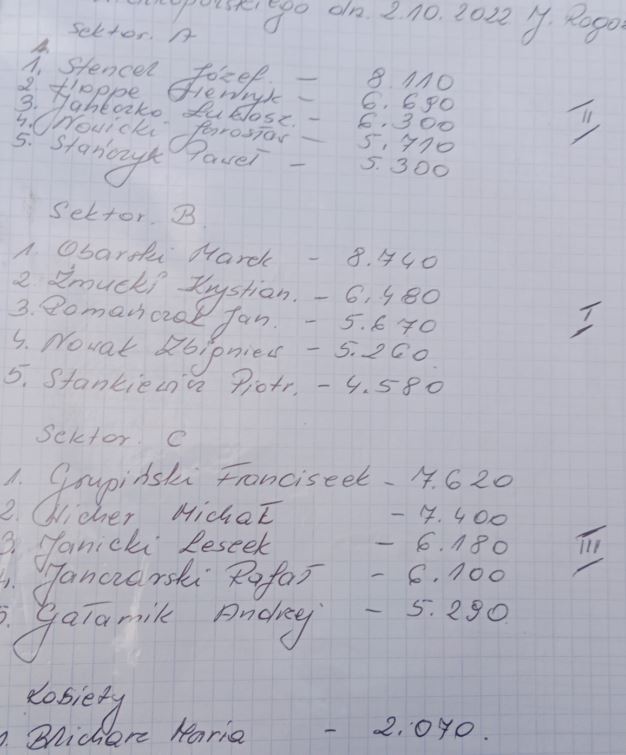 dn. 2.10.2022
Sektor. A
1. Stencel Józef. - 8.110
2. Hoppe Henryk - 6.690
3. Janeczko Łukasz. - 6.300
4. Nowicki Jarosław - 5.710
5. Stańczyk Paweł - 5.300
II
Sektor. B.
1. Obarski Marek - 8.740
2 Żmucki Krystian. - 6.480
3. Romańczak Jan. - 5.670
I
4. Nowak Zbigniew - 5.260.
5. Stankiewicz Piotr. - 4.580
Sektor. C
1. Grupiński Franciszek - 7.620
2. Wicher Michał - 7.400
3. Janicki Leszek - 6.180
III
4. Janczarski Rafał - 6.100
5. Gałamik Andrzej - 5.290
Kobiety
1. Maria - 2.070.